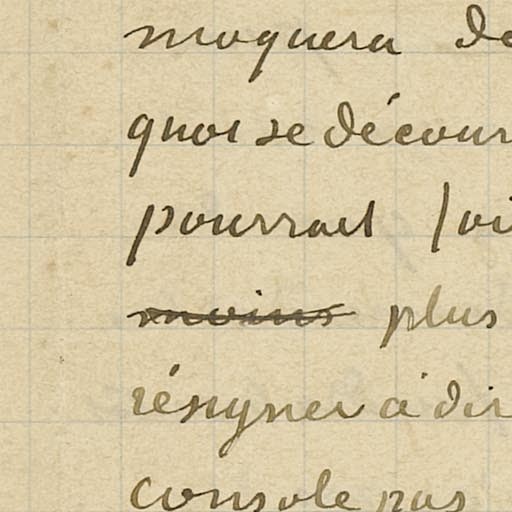 moquera de
quoi se décour
pourrait
moins plus
résigner à dir
console pas